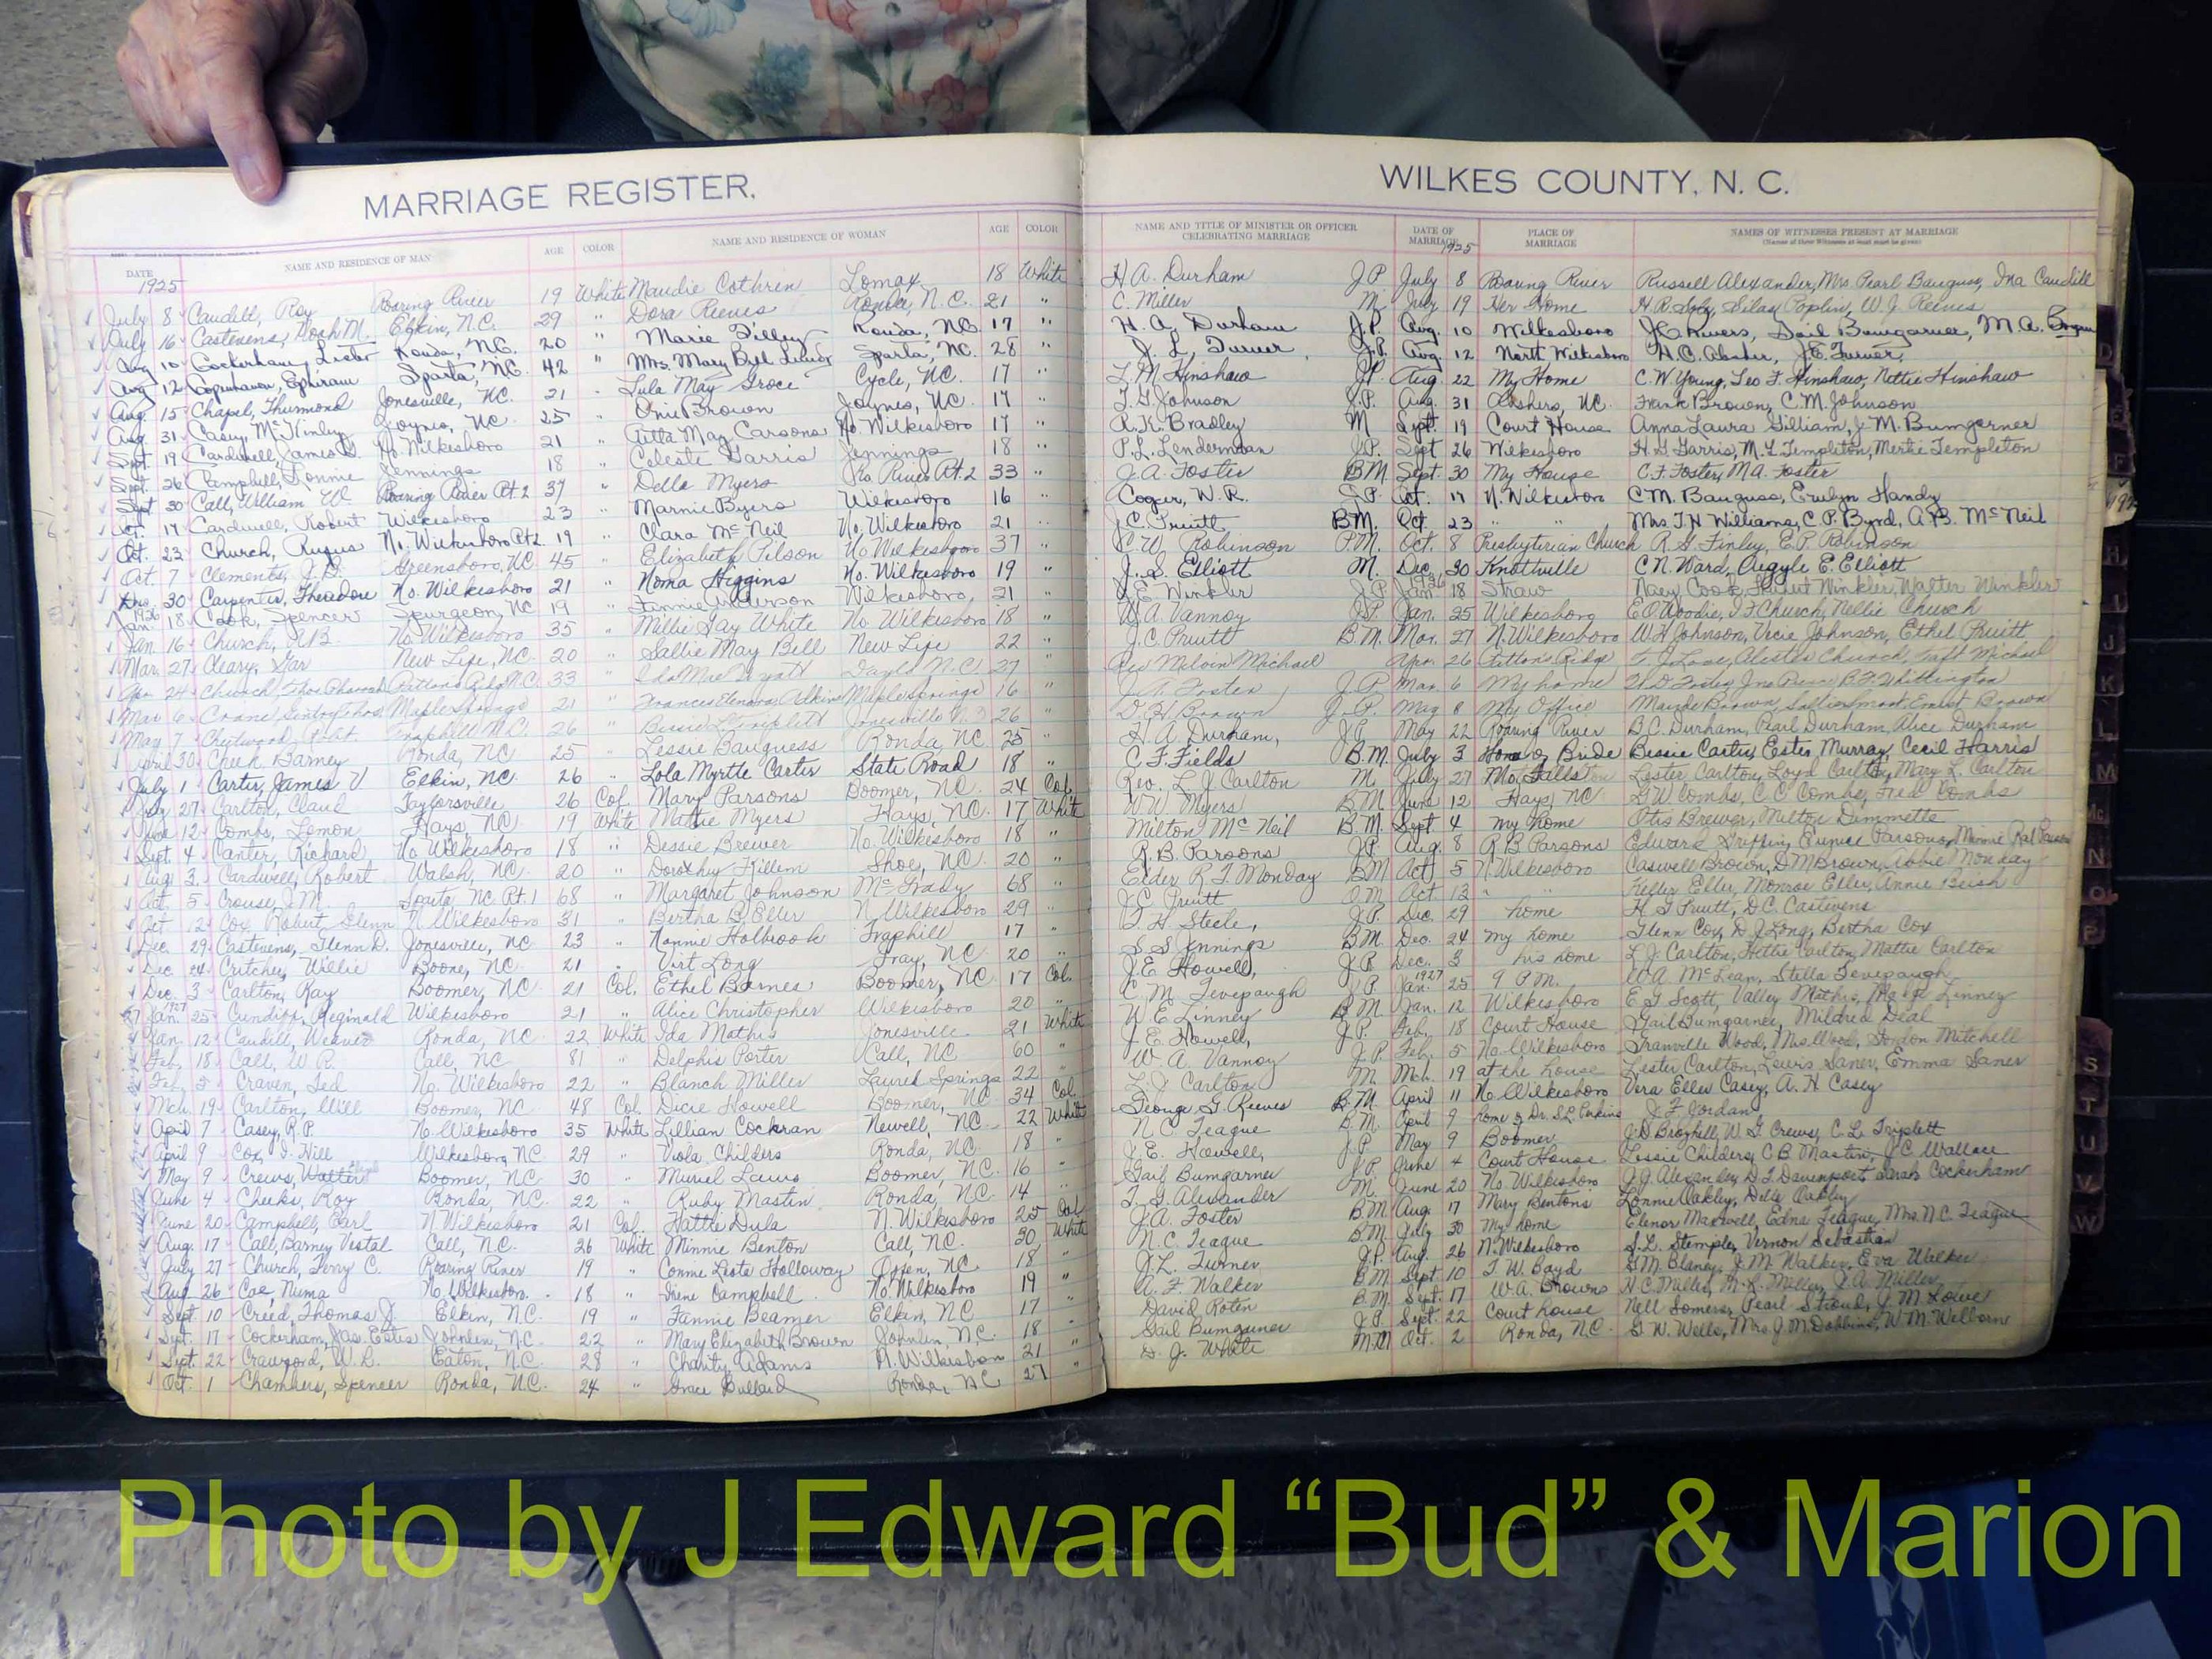 MARRIAGE REGISTER.
WILKES COUNTY, N. C.
DATE NAME AND RESIDENCE OF MAN AGE COLOR NAME AND RESIDENCE OF WOMAN AGE COLOR NAME AND TITLE OF MINISTER OR OFFICER CELEBRATING MARRIAGE DATE OF MARRIAGE PLACE OF MARRIAGE NAMES OF WITNESSES PRESENT AT MARRIAGE
(Names of three Witnesses at least must be given)
1925 1925
July 8 Caudill, Roy Roaring River 19 White Maudie Cothren Lomax 18 White H A. Durham J.P. July 8 Roaring River Russell Alexander, Mrs Pearl Bauguss, Ina Caudill
July 16 Castevens, M. Elkin, N.C. 29 " Dora Reeves Ronda, N.C. 21 " C. Miller M July 19 Her Home Silas Poplin, W. J. Reeves
Aug 10 Cockerham, Lester Ronda, N.C. 20 " Marie Tilley Ronda, N.C. 17 " H. A. Durham J.P. Aug. 10 Wilkesboro J.C. Rivers, Gail Bumgarner, M.A.
Aug 12 Ephriam Sparta, N.C. 42 " Mrs. Mary Bell Sparta, N.C. 28 " J. L. Turner J.P. Aug. 12 North Wilkesboro H.C. Absher, J.E. Turner,
Aug. 15 Chapel, Thurmond Jonesville, N.C. 21 " Lula May Groce Cycle, N.C. 17 " L M Hinshaw J.P. Aug. 22 My Home C. W. Young, Leo F. Hinshaw, Nettie Hinshaw
Aug. 31 Casey, McKinley Joynes, N.C. 25 " Orie Brown Joynes, N.C. 17 " T. G. Johnson J.P. Aug. 31 Abshers, N.C. Frank Brown, C. M. Johnson
Sept. 19 Cardwell, James No. Wilkesboro 21 " May Carsons No. Wilkesboro 17 " A. K. Bradley M Sept. 19 Court House Anna Laura Gilliam, J. M. Bumgarner
Sept. 26 Campbell, Lonnie Jennings 18 " Celeste Garris Jennings 18 " P. L. Lenderman J.P. Sept 26 Wilkesboro H. G. Garris, M. L. Templeton, Mertie Templeton
Sept 30 Call, William W. Roaring River Rt. 2 37 " Della Myers Ro River Rt. 2 33 " J. A. Foster B M Sept. 30 My House C. F. Foster, M A. Foster
Oct. 17 Cardwell, Robert Wilkesboro 23 " Marnie Byers Wilkesboro 16 " Coger, W. R. J.P. Oct. 17 N. Wilkesboro C. M. Bauguss, Evelyn Handy
Oct. 23 Church, Rufus No. Wilkesboro Rt 2 19 " Clara McNeil No. Wilkesboro 21 " J. C. Pruitt B M. Oct 23 " " Mrs. T. H Williams, C. P. Byrd, A. B. McNeil
Oct. 7 Clements, J. D. Greensboro, N.C. 45 " Elizabeth Pilson No Wilkesboro 37 " C. W. Robinson P.M. Oct. 8 Presbyterian Church R. G. Finley, E. P. Robinson
Dec. 30 Carpenter, Theodore No. Wilkesboro 21 " Noma Higgins No. Wilkesboro 19 " J. S. Elliott M. Dec. 30 Knottville C. N. Ward, Argyle E. Elliott
1926 Jan. 18 Cook, Spencer Spurgeon, N.C. 19 " Fannie Wilkesboro, 21 " J. E. Winkler J.P. 1926 Jan 18 Straw Cook, Winkler, Walter Winkler
Jan. 16 Church, No. Wilkesboro 35 " Millie Gay White No. Wilkesboro 18 " W. A. Vannoy J.P. Jan. 25 Wilkesboro E. O. Woodie, J F Church, Nellie Church
Mar. 27 Cleary, New Life, N.C. 20 " Sallie May Bell New Life 22 " J. C. Pruitt B. M. Mar. 27 N. Wilkesboro W. H Johnson, Vicie Johnson, Ethel Pruitt
Apr. 24 Church, Pattons Ridge N.C. 33 " Ida Mae N.C. 27 " Rev Melvin Michael Apr. 26 Patton's Ridge Church, Taft Michael
Mar 6 Maple Springs 21 " Maple Springs 16 " J. A. Foster J. P. Mar. 6 My home Whittington
May 7 N.C. 26 " Bessie L. Triplett Jonesville N.C. 26 " D. H. Brown J. P. May 8 My Office Maude Brown, Ernest Brown
April 30 Cheek Barney Ronda, N.C. 25 " Lessie Bauguess Ronda, N.C. 25 " H. A. Durham, J P May 22 Roaring River B. C. Durham, Pearl Durham, Alice Durham
July 1 Carter, James V Elkin, N.C. 26 " Lola Myrtle Carter State Road 18 " C. F. Fields B.M. July 3 Home of Bride Bessie Carter, Ester Murray, Cecil Harris
July 27 Carlton, Claud Taylorsville 26 Col. Mary Parsons Boomer, N.C. 24 Col. Rev. L. J. Carlton M. July 27 Lester Carlton, Loyd Carlton, Mary L. Carlton
June 12 Combs, Lemon Hays, N.C. 19 White Mattie Myers Hays, N.C. 17 White W. W. Myers B M June 12 Hays, N.C. G. W. Combs, C. C. Combs, Fred Combs
Sept. 4 Canter, Richard No. Wilkesboro 18 " Dessie Brewer No. Wilkesboro 18 " Milton McNeil B. M. Sept. 4 my home Otis Brewer, Milton Dimmette
Aug 3 Cardwell, Robert Walsh, N.C. 20 " Dorothy Killem Shoe, N.C. 20 " R. B. Parsons J.P. Aug. 8 R. B. Parsons Edward Griffin, Eunice Parsons,
Oct. 5 Crouse, J. M. N.C. Rt. 1 68 " Margaret Johnson McGrady 68 " Elder R. F. Monday B M Oct 5 N. Wilkesboro Caswell Brown, D M Brown, Monday
Oct 12 Cox, Robert Glenn N. Wilkesboro 31 " Bertha B. Eller N. Wilkesboro 29 " J. C. Pruitt Oct 13 " " Eller, Monroe Eller, Annie Beish
Dec. 29 Castevens, Glenn D. Jonesville, N.C. 23 " Nannie Holbrook Traphill 17 " T. H. Steele, J. P. Dec. 29 home H. G Pruitt, D. C. Castevens
Dec 24 Critcher, Willie Boone, N.C. 21 " Virt Long N.C. 20 " S. S. Jennings B.M. Dec. 24 my home Glenn Cox, D. J Long, Bertha Cox
Dec. 3 Carlton, Ray Boomer, N.C. 21 Col. Ethel Barnes Boomer, N.C. 17 Col. J. E. Howell, J. P. Dec. 3 his home L. J. Carlton, Hettie Carlton, Mattie Carlton
1927 Jan. 25 Cundiff, Reginald Wilkesboro 21 " Alice Christopher Wilkesboro 20 " C. M. Tevepaugh J.P. 1927 Jan. 25 9 P.M. W. A. McLean, Stella Tevepaugh
Jan. 12 Caudill, Weaver Ronda, N.C. 22 White Ida Mathis Jonesville 21 White W. E. Linney B. M Jan. 12 Wilkesboro E. G. Scott, Valley Mathis, Linney
Feb. 18 Call, W. R. Call, N.C. 81 " Delphia Porter Call, N.C. 60 " J. E. Howell, J. P. Feb. 18 Court House Gail Bumgarner, Mildred Deal
Feb. 5 Craven, Ted No. Wilkesboro 22 " Blanch Miller Laurel Springs 22 " W. A. Vannoy J. P. Feb. 5 No. Wilkesboro Granville Wood, Mrs. Wood, Gordon Mitchell
Mch. 19 Carlton, Will Boomer, N.C. 48 Col. Dicie Howell Boomer, N.C. 34 Col. L. J. Carlton M. Mch. 19 at the house Lester Carlton, Lewis Saner, Emma Saner
April 7 Casey, R. P. No. Wilkesboro 35 White Lillian Cockran Newell, N.C. 22 White George G. Reeves B. M. April 11 No. Wilkesboro Vera Eller Casey, A. H. Casey
April 9 Cox, J. Hill Wilkesboro, N.C. 29 " Viola Childers Ronda, N.C. 18 " N. C. Teague B. M. April 9 home of Dr. S.L. Perkins J. F. Jordan
May 9 Crews, Walter Boomer, N.C. 30 " Muriel Laws Boomer, N.C. 16 " J. E. Howell, J. P. May 9 Boomer J. D Broyhill, W. G Crews, C. L. Triplett
June 4 Cheeks, Roy Ronda, N.C. 22 " Ruby Mastin Ronda, N.C. 14 " Gail Bumgarner J. P. June 4 Court House Lessie Childers, C B. Mastin, J. C. Wallace
June 20 Campbell, Earl N. Wilkesboro 21 Col. Hattie Dula N. Wilkesboro 25 Col. T. G. Alexander M. June 20 No. Wilkesboro J. J. Alexander, D. T. Davenport, Sarah Cockerham
Aug. 17 Call, Barney Vestal Call, N.C. 26 White Minnie Benton Call, N.C. 30 White J. A. Foster B M Aug. 17 Mary Benton's Lonnie Oakley, Della Oakley
July 27 Church, Terry C. Roaring River 19 " Connie Leota Holloway Ossen, N.C. 18 " N. C. Teague B M. July 30 My home Elenor Maxwell, Edna Teague, Mrs. N.C. Teague
Aug. 26 Coe, Numa No. Wilkesboro 18 " Irene Campbell No. Wilkesboro 19 " J. L. Turner J. P. Aug. 26 N. Wilkesboro S. L. Stemple, Vernon Sebastian
Sept. 10 Creed, Thomas J. Elkin, N.C. 19 " Fannie Beamer Elkin, N.C. 17 " A. F. Walker B M. Sept 10 T. W. Boyd G. M. Blaney, J. M. Walker, Eva Walker
Sept. 17 Cockerham, Jas. Estes N.C. 22 " Mary Elizabeth Brown N.C. 18 " David Roten B. M. Sept. 17 W. A. Browns H. C. Miller, M. R. Miller, J. A. Miller
Sept. 22 Crawford, W. L. Eaton, N.C. 28 " Charity Adams N. Wilkesboro 21 " Gail Bumgarner J. P. Sept. 22 Court house Nell Somers, Pearl Stroud, J. M. Lowe
Oct. 1 Chambers, Spencer Ronda, N.C. 24 " Grace Bullard Ronda, N.C. 27 " D. J. White Oct. 2 Ronda, N.C. G. W. Wells, Mrs J. M Dobbins, W. M. Welborn
D
F
H
I
J
K
L
M
Mc
N
O
P
S
T
U
V
W
Photo by J Edward “Bud” & Marion